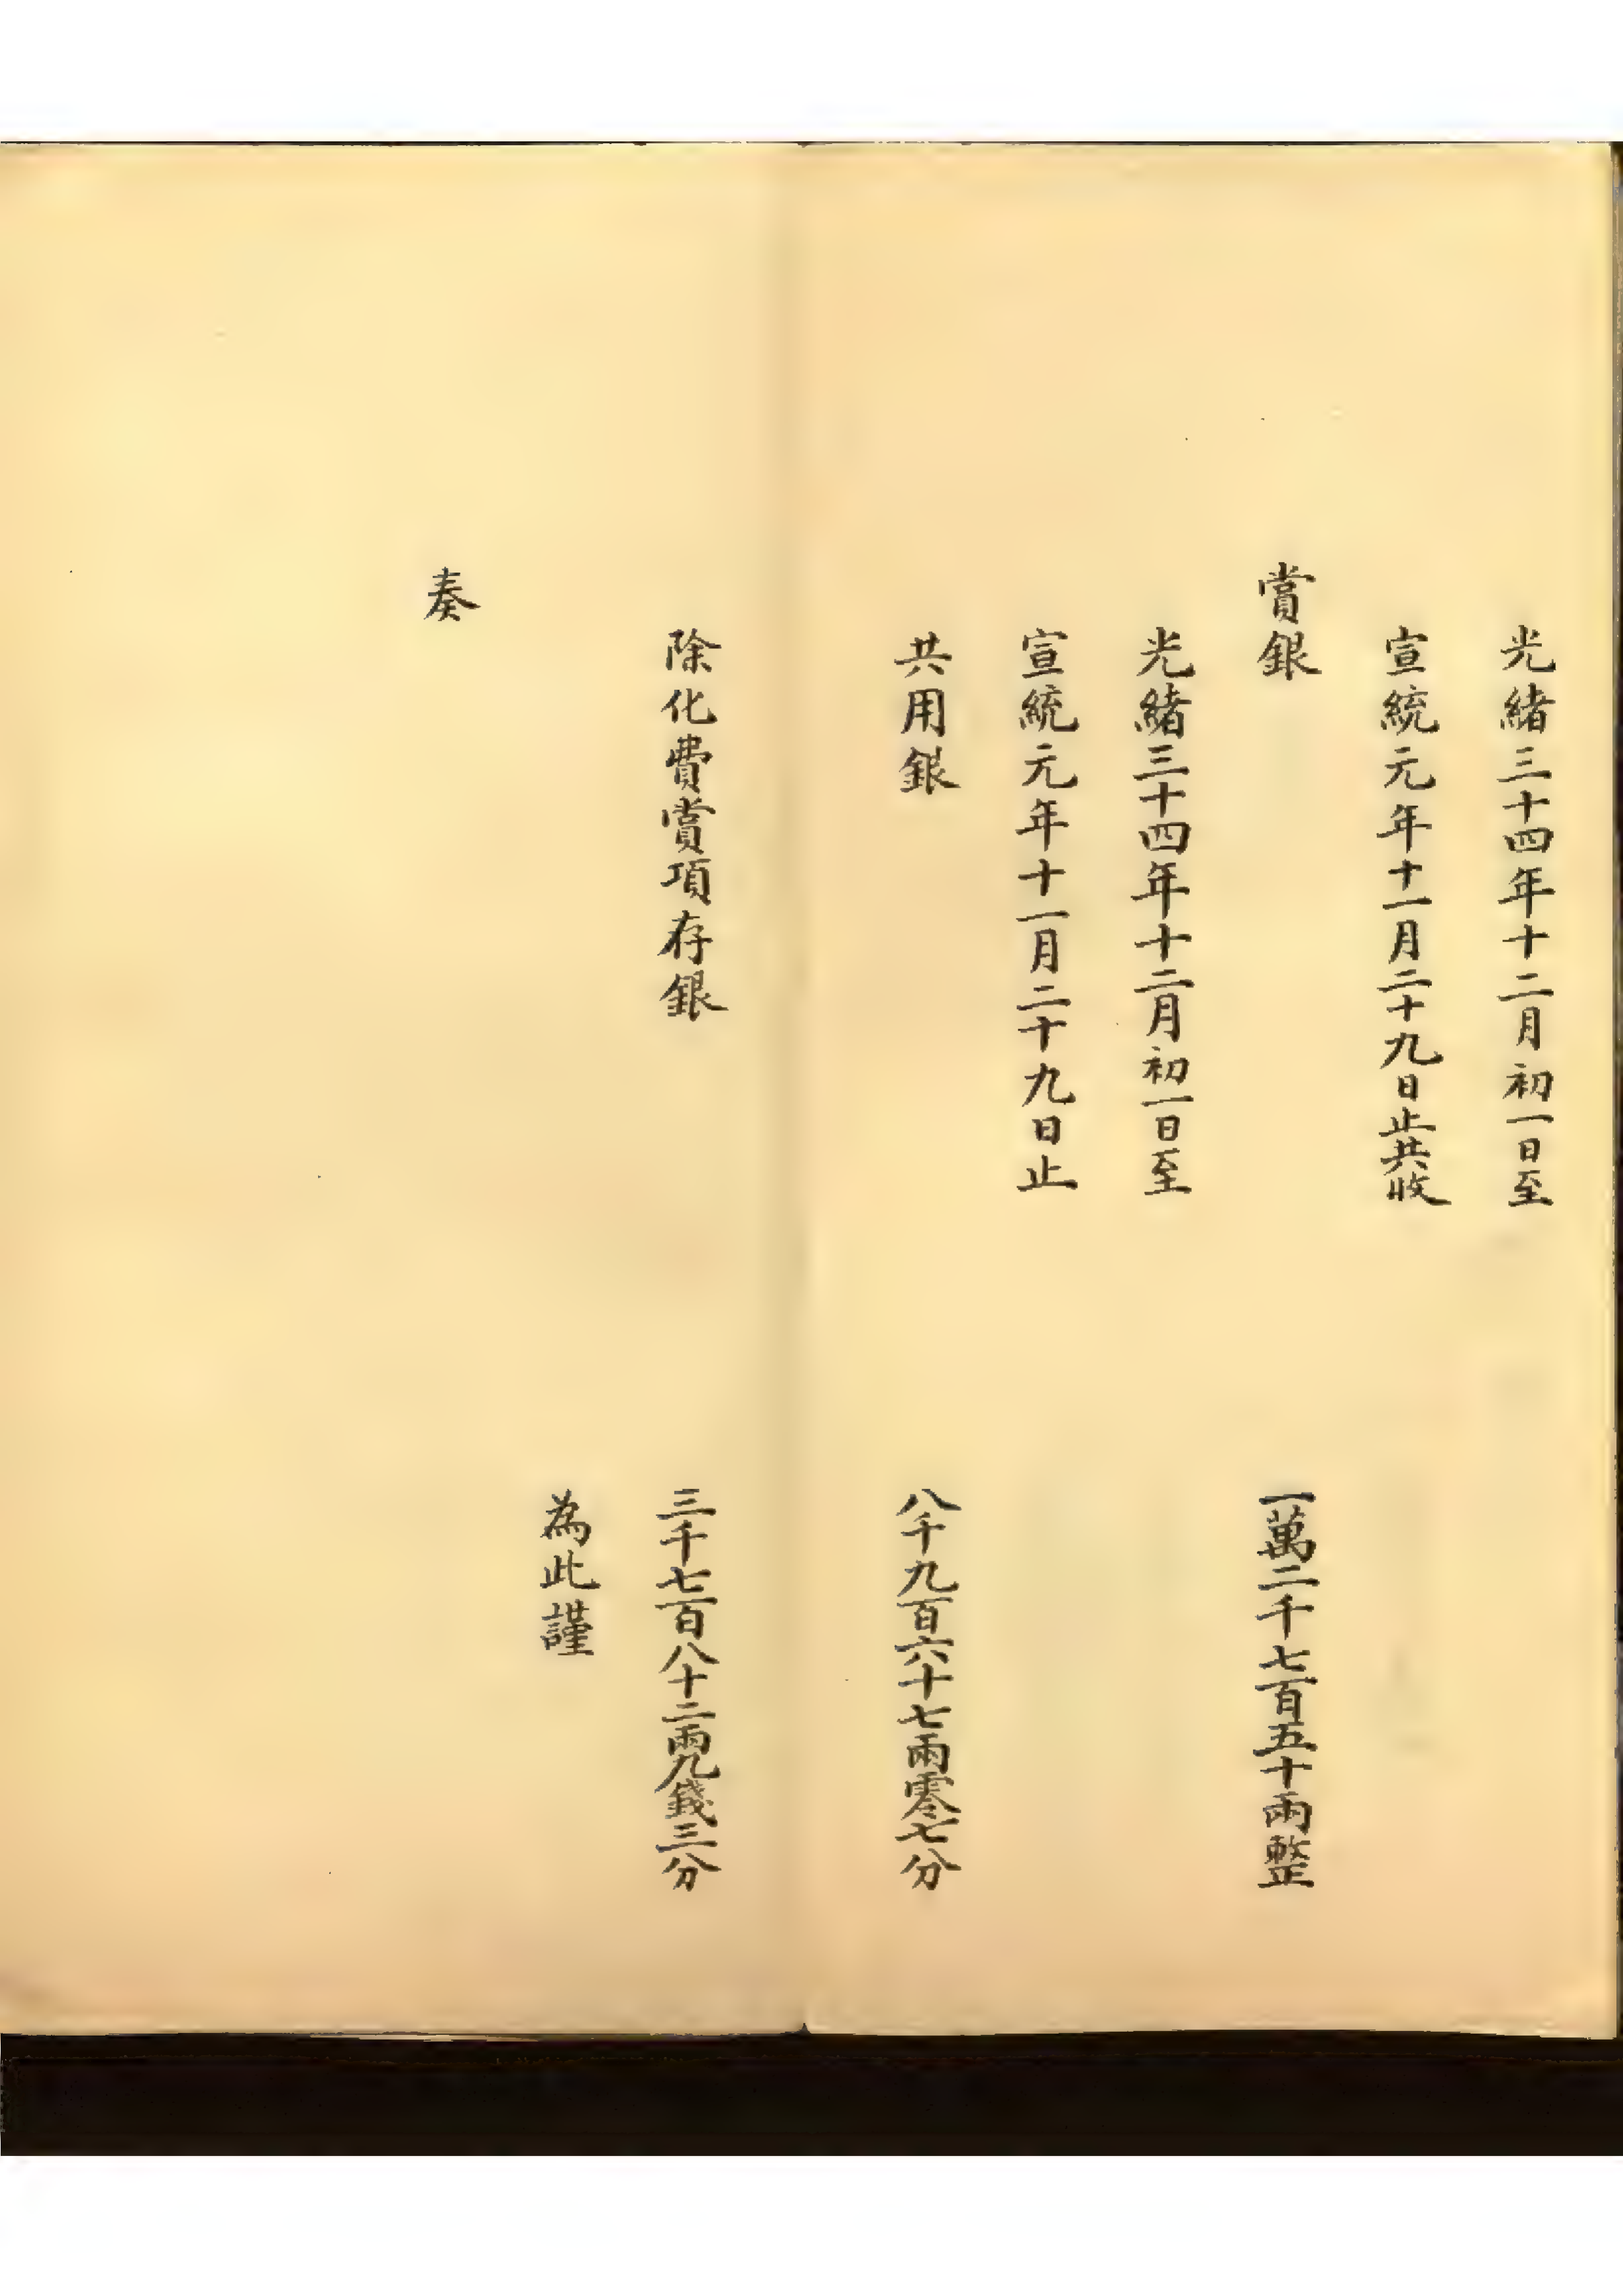 光緒三十四年十二月初一日至
宣統元年十一月二十九日止共收
賞銀 一萬二千七百五十兩整
光緒三十四年十二月初一日至
宣統元年十一月二十九日止
共用銀 八千九百六十七兩零七分
除化費賞項存銀 三千七百八十二兩九錢三分
為此謹
奏